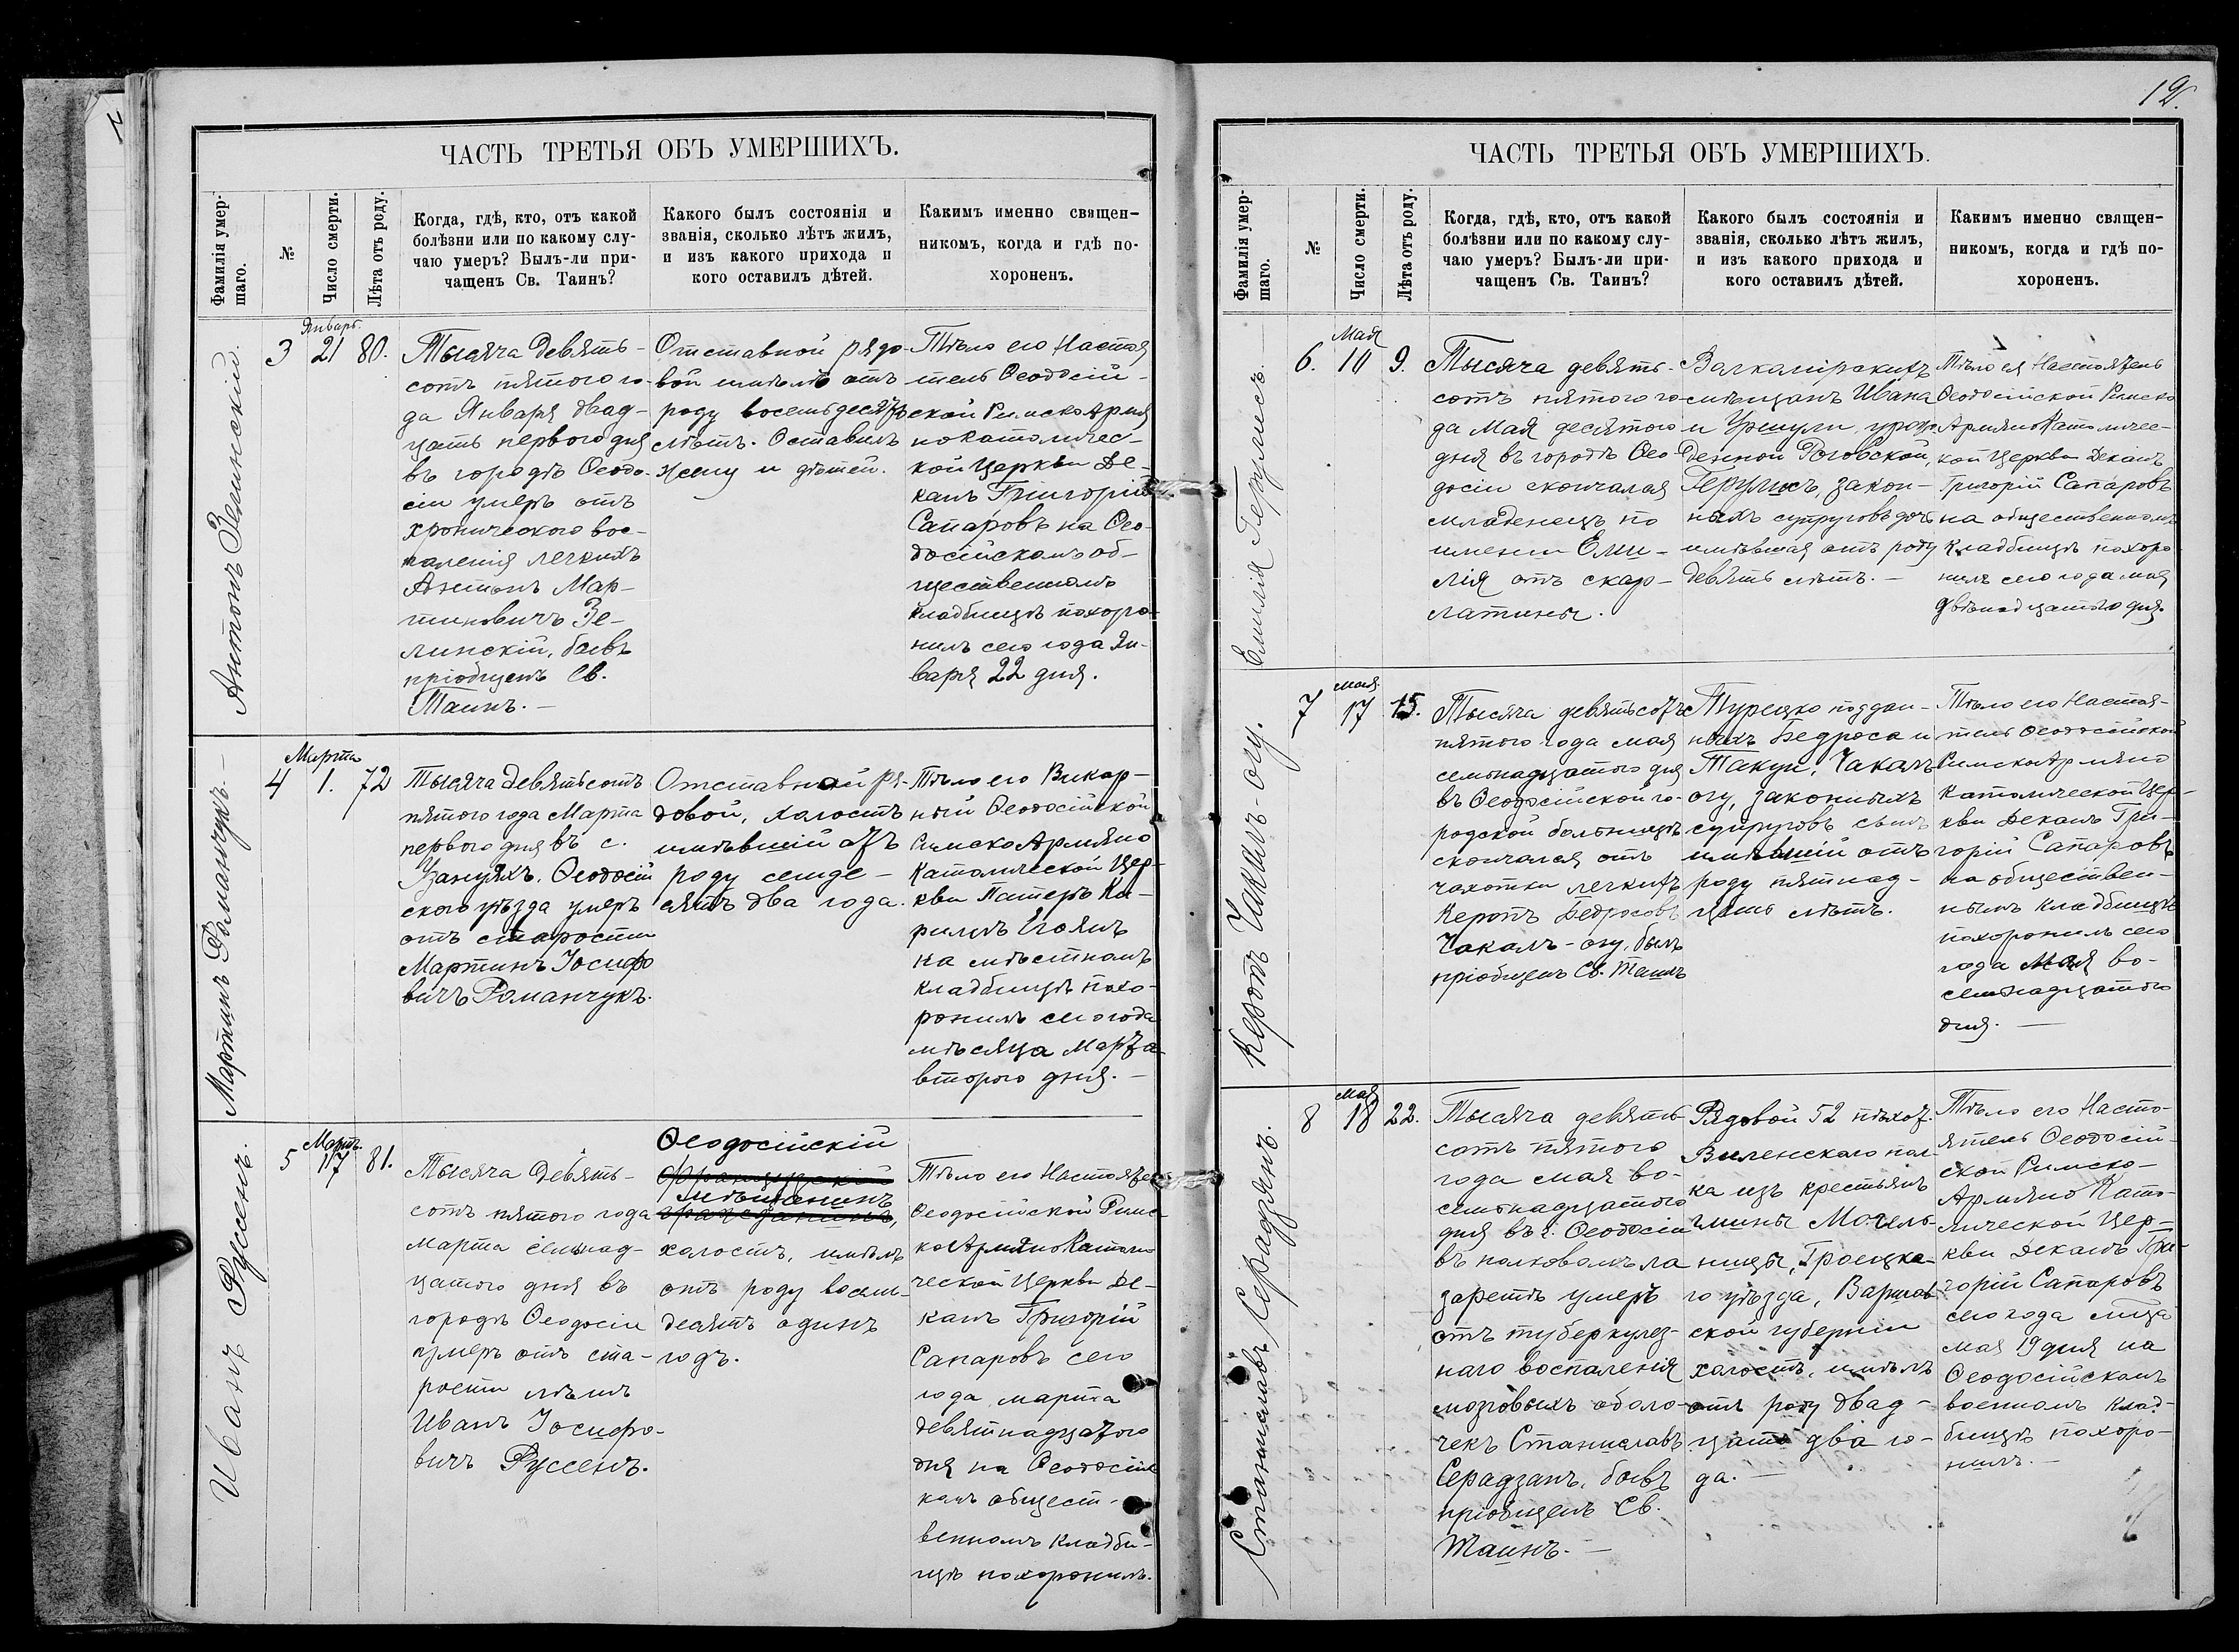 ЧАСТЬ ТРЕТЬЯ ОБЪ УМЕРШИХЪ.
Фамилія умер-
шаго.
№
Число смерти.
Лѣта отъ роду.
Когда, гдѣ, кто, отъ какой
болѣзни или по какому слу-
чаю умеръ? Былъ-ли при-
чащенъ Св. Таинъ?
Какого былъ состоянія и
званія, сколько лѣтъ жилъ,
и изъ какого прихода и
кого оставилъ дѣтей.
Какимъ именно священ-
никомъ, когда и гдѣ по-
хороненъ.
Антонъ Зелинскій.
3
Январь.
21
80.
Тысяча девять-
сотъ пятого го-
да Января двад-
цать первого дня
въ городѣ Ѳеодо-
сіи умеръ отъ
хронического вос-
паленія легкихъ
Антонъ Мар-
тиновичъ Зе-
линскій, бывъ
пріобщенъ Св.
Таинъ. —
Отставной рядо-
вой имѣлъ отъ
роду восемьдесятъ
лѣтъ. Оставилъ
жену и дѣтей.
Тѣло его Настоя
тель Ѳеодосій-
ской Римско Армя
но Католичес-
кой Церкви Де-
канъ Григорій
Сапаровъ на Ѳео-
досійскомъ об-
щественномъ
кладбищѣ похоро-
нилъ сего года Ян-
варя 22 дня.
Мартинъ Романчукъ. —
4
Марта
1.
72
Тысяча девятьсотъ
пятого года Марта
первого дня въ с.
Узануяхъ, Ѳеодосій
ского уѣзда умеръ
отъ старости
Мартинъ Іосифо
вичъ Романчукъ.
Отставной ря-
довой, холостъ
имѣвшій отъ
роду семде-
сятъ два года.
Тѣло его Викар-
ный Ѳеодосійской
Римско Армяно
Католической Цер-
кви Патеръ Ки-
риллъ Егоянъ
на мѣстномъ
кладбищѣ похо-
ронилъ сего года
мѣсяца Марта
второго дня. —
Иванъ Руссенъ.
5
Мартъ.
17
81.
Тысяча девять-
сотъ пятого года
Марта семнад-
цатого дня въ
городѣ Ѳеодосіи
умеръ отъ ста-
рости лѣтъ
Иванъ Іосифо-
вичъ Руссенъ.
Ѳеодосійскій
Французскій
мѣщанинъ
гражданинъ,
холостъ, имѣлъ
отъ роду восемь-
десятъ одинъ
годъ.
Тѣло его Настоятель
Ѳеодосійской Римс
ко Армяно Католи
ческой Церкви Де-
канъ Григорій
Сапаровъ сего
года марта
девятнадцатого
дня на Ѳеодосійс
комъ общест-
венномъ кладби-
щѣ похоронилъ.
12.
ЧАСТЬ ТРЕТЬЯ ОБЪ УМЕРШИХЪ.
Фамилія умер-
шаго.
№
Число смерти.
Лѣта отъ роду.
Когда, гдѣ, кто, отъ какой
болѣзни или по какому слу-
чаю умеръ? Былъ-ли при-
чащенъ Св. Таинъ?
Какого былъ состоянія и
званія, сколько лѣтъ жилъ,
и изъ какого прихода и
кого оставилъ дѣтей.
Какимъ именно священ-
никомъ, когда и гдѣ по-
хороненъ.
Емилія Герулисъ.
6.
Мая
10
9.
Тысяча девять-
сотъ пятого го-
да Мая десятого
дня въ городѣ Ѳео
досіи скончалая
младенецъ по
имени Еми-
лія отъ скар-
латины.
Валкомірскихъ
мѣщанъ Ивана
и Уршули, урож-
денной Роговской,
Герулисъ, закон-
ныхъ супруговъ дочь
имѣвшая отъ роду
девять лѣтъ. —
Тѣло ея Настоятель
Ѳеодосійской Римско
Армяно Католичес-
кой Церкви Деканъ
Григорій Сапаровъ
на общественномъ
кладбищѣ похоро
нилъ сего года мая
двѣнадцатого дня.
Керопъ Чакалъ-огу.
7
мая
17
15.
Тысяча девятьсотъ
пятого года мая
семнадцатого дня
въ Ѳеодосійской го-
родской больницѣ
скончался отъ
чахотки легкихъ
Керопъ Бедросовъ
Чакалъ-огу, былъ
пріобщенъ Св. Таинъ
Турецко поддан-
ныхъ Бедроса и
Такуи, Чакалъ
огу, законныхъ
супруговъ сынъ
имѣвшій отъ
роду пятнад-
цать лѣтъ.
Тѣло его Настоя-
тель Ѳеодосійской
Римско Армяно
Католической Цер-
кви Деканъ Гри-
горій Сапаровъ
на обществен-
номъ кладбищѣ
похоронилъ сего
года Мая во-
семнадцатого
дня. —
Станиславъ Серадзянъ.
8
мая
18
22.
Тысяча девять
сотъ пятого
года мая во-
семнадцатого
дня въ г. Ѳеодосіи
въ полковомъ ла
заретѣ умеръ
отъ туберкулез-
наго воспаленія
мозговыхъ оболо-
чекъ Станиславъ
Серадзанъ, бывъ
пріобщенъ Св.
Таинъ. —
Рядовой 52 пѣхот.
Виленскаго пол-
ка изъ крестьянъ
гмины Могель-
ницы, Гроецка-
го уѣзда, Варшав
ской губерніи
холостъ, имѣлъ
отъ роду двад-
цать два го-
да. —
Тѣло его Насто-
ятель Ѳеодосій-
ской Римско-
Армяно Като-
лической Цер-
кви Деканъ Гри-
горій Сапаровъ
сего года мѣсца
мая 19 дня на
Ѳеодосійскомъ
военномъ клад-
бищѣ похоро-
нилъ. —